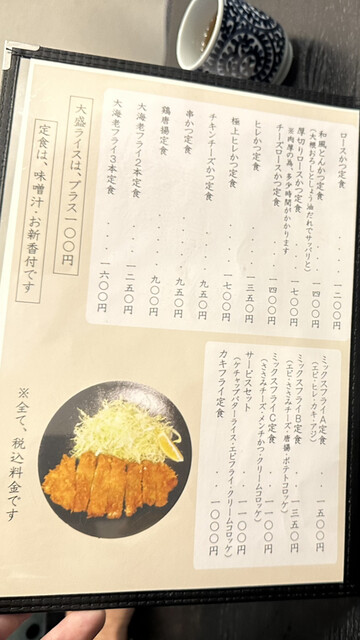 ロースかつ定食 ・・・ 一二〇〇円
和風とんかつ定食 ・・・ 一四〇〇円
(大根おろしとしょう油だれでサッパリと)
厚切りロースかつ定食 ・・ 一七〇〇円
※肉厚の為、多少時間がかかります
チーズロースかつ定食 ・・ 一四〇〇円
ヒレかつ定食 ・・・・ 一三五〇円
極上ヒレかつ定食 ・・・ 一七〇〇円
チキンチーズかつ定食 ・・ 九五〇円
串かつ定食 ・・・・ 九五〇円
鶏唐揚定食 ・・・・ 九〇〇円
大海老フライ2本定食 ・・ 一二五〇円
大海老フライ3本定食 ・・ 一六〇〇円
大盛ライスは、プラス一〇〇円
定食は、味噌汁・お新香付です
ミックスフライA定食 ・・ 一五〇〇円
(エビ・ヒレ・カキ・アジ)
ミックスフライB定食 ・・ 一三五〇円
(エビ・ささみチーズ・唐揚・ポテトコロッケ)
ミックスフライC定食 ・・ 一一〇〇円
(ささみチーズ・メンチかつ・クリームコロッケ)
サービスセット ・・・ 一一〇〇円
(ケチャップバターライス・エビフライ・クリームコロッケ)
カキフライ定食 ・・・ 一〇〇〇円
※全て、税込料金です